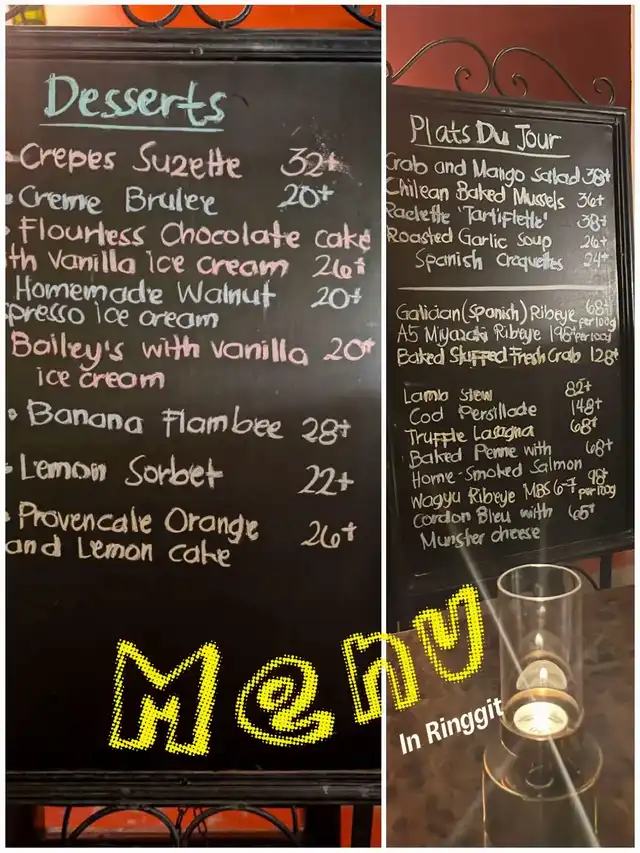 Desserts
Crepes Suzette 32+
Creme Brulee 20+
Flourless Chocolate cake
th Vanilla ice cream 26+
Homemade Walnut 20+
presso ice cream
Bailey's with vanilla 20+
ice cream
Banana Flambee 28+
Lemon Sorbet 22+
Provencale Orange 26+
and Lemon cake
Plats Du Jour
Crab and Mango Salad 38+
Chilean Baked Mussels 36+
Raclette 'Tartiflette' 38+
Roasted Garlic Soup 26+
Spanish Croquettes 24+
Galician (Spanish) Ribeye 68+ per 100g
A5 Miyazaki Ribeye 198+ per 100g
Baked Stuffed Fresh Crab 128+
Lamb stew 82+
Cod Persillade 148+
Truffle Lasagna 68+
Baked Penne with 68+
Home-Smoked Salmon
Wagyu Ribeye MBS 6-7 98+ per 100g
Cordon Bleu with 65+
Munster cheese
Menu
In Ringgit